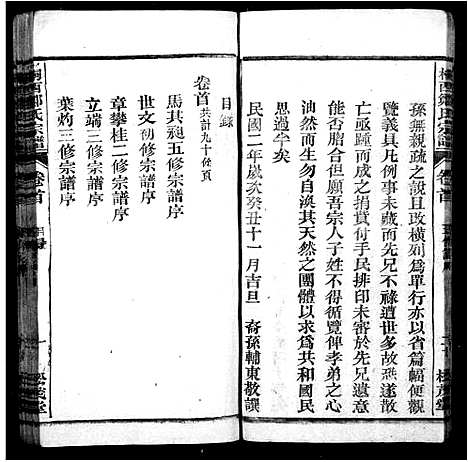 孫無親疏之說且改橫列為單行亦以省篇幅便觀
覽義具凡例事未蕆而先兄不祿遭世多故燕散
亡亟踵而成之捐貲付手民排印未審於先兄遺意
能否脗合但願吾宗人子姓不得循覽俾孝弟之心
油然而生勿自渙其天然之團體以求為共和國民
思過半矣
民國二年歲次癸丑十一月吉旦 裔孫輔東敬譔
目錄
卷首共計九十條頁
馬其昶五修宗譜序
世文初修宗譜序
章攀桂二修宗譜序
立端三修宗譜序
葉灼三修宗譜序
桐西鄒氏宗譜
卷首
目錄